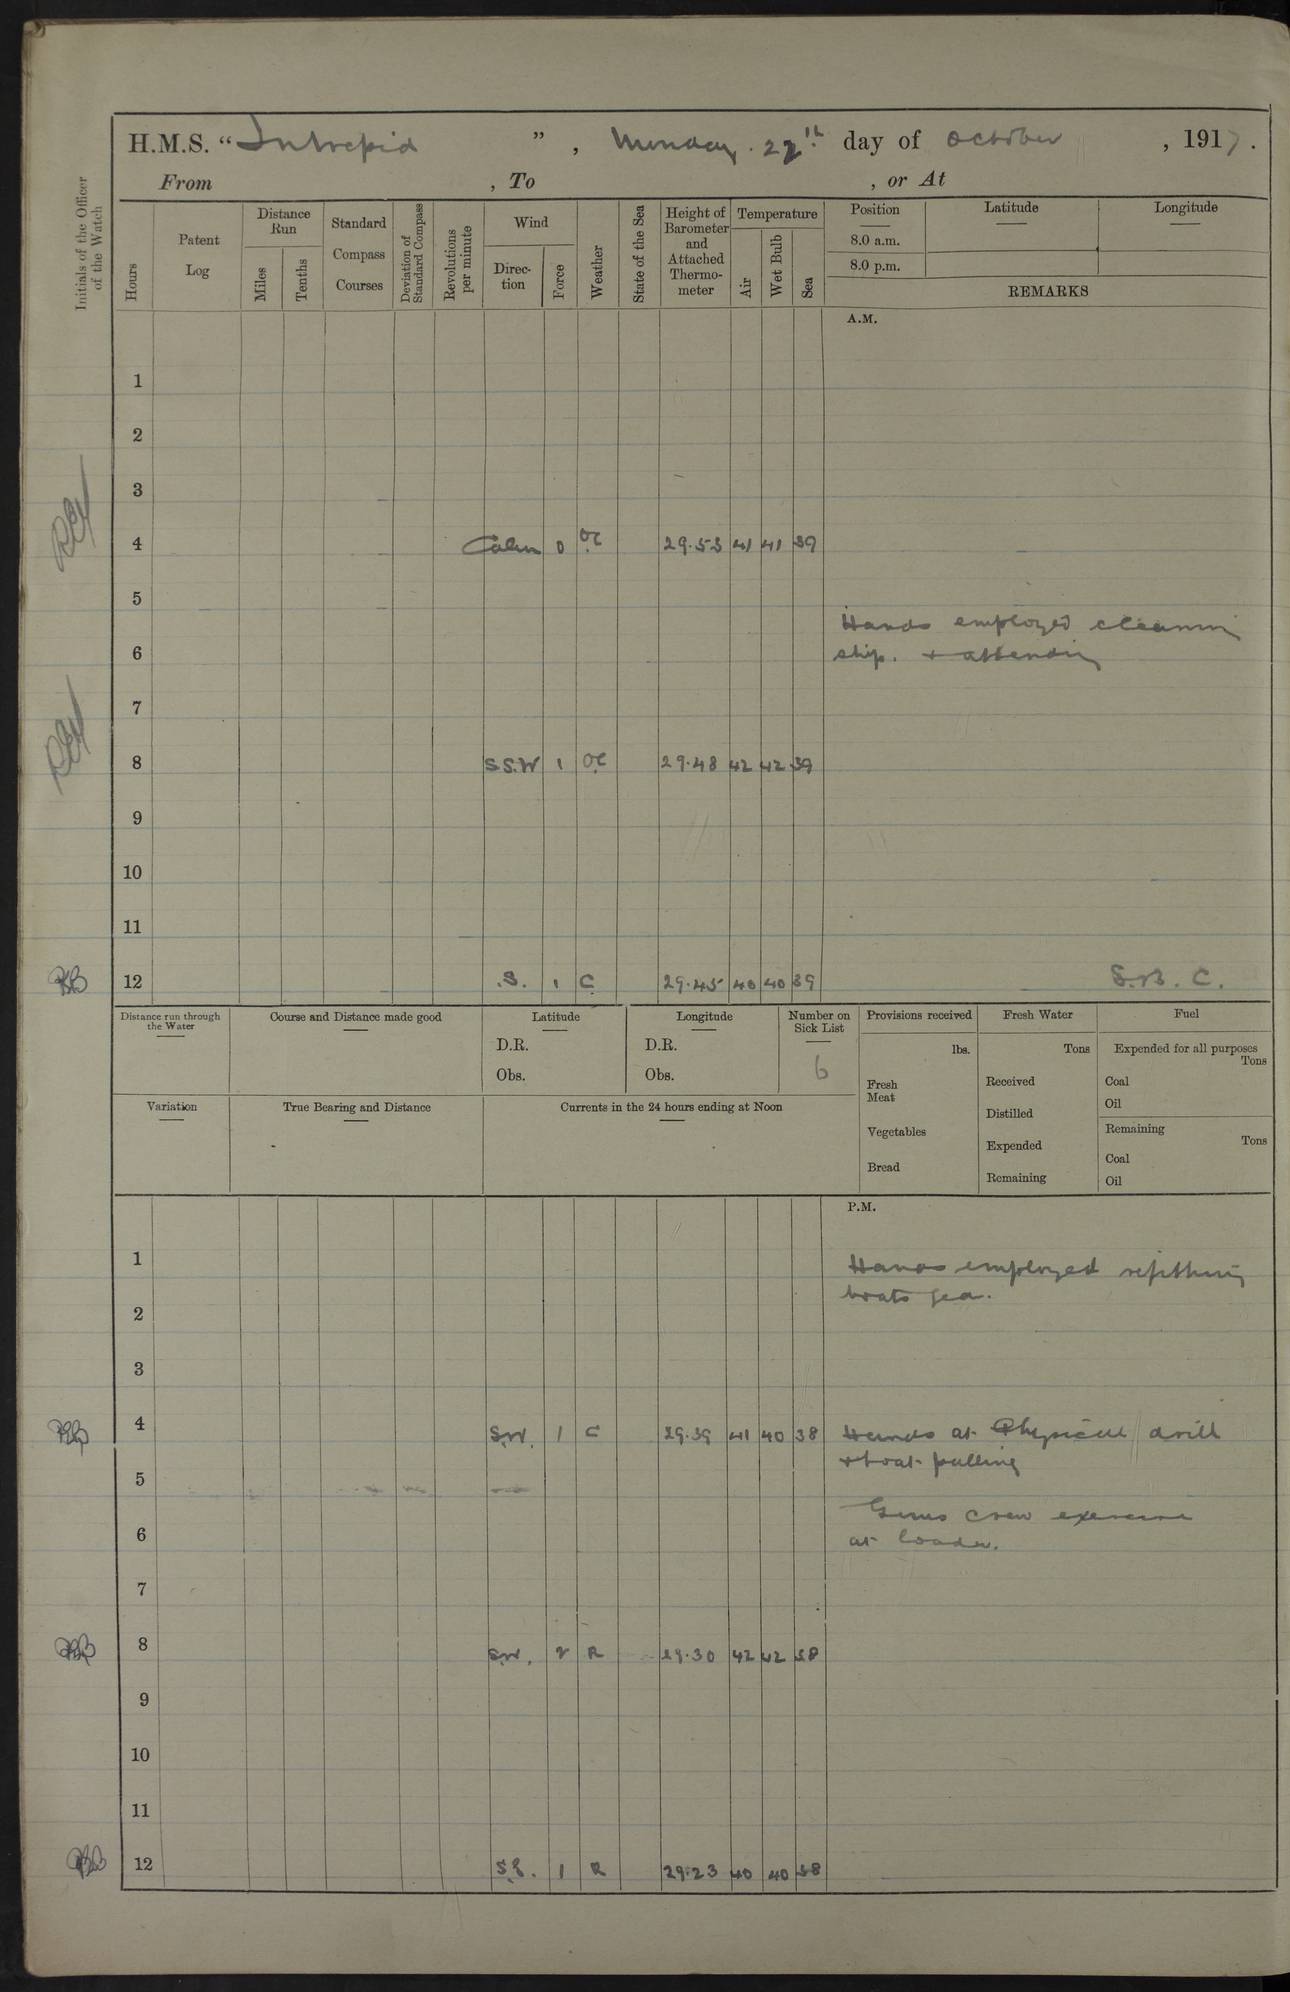 H.M.S. "Intrepid", Monday. 22th day of October, 1917.
From , To , or At
Initials of the Officer of the Watch
Hours
Patent Log
Distance Run
Miles
Tenths
Standard Compass Courses
Deviation of Standard Compass
Revolutions per minute
Wind
Direction
Force
Weather
State of the Sea
Height of Barometer and Attached Thermometer
Temperature
Air
Wet Bulb
Sea
Position
8.0 a.m.
8.0 p.m.
Latitude
Longitude
REMARKS
A.M.
1
2
3
4 Calm 0 OC 29.53 41 41 39
5
Hands employed cleaning
6 ship. + attending
7
8 S.S.W 1 OC 29.48 42 42 39
9
10
11
12 S. 1 C 29.45 40 40 39 S.B.C.
Distance run through the Water
Course and Distance made good
Latitude
D.R.
Obs.
Longitude
D.R.
Obs.
Number on Sick List
6
Provisions received
lbs.
Fresh Meat
Vegetables
Bread
Fresh Water
Tons
Received
Distilled
Expended
Remaining
Fuel
Expended for all purposes
Tons
Coal
Oil
Remaining
Tons
Coal
Oil
Variation
True Bearing and Distance
Currents in the 24 hours ending at Noon
P.M.
1 Hands employed refitting
boats gea.
2
3
4 S.W. 1 C 29.39 41 40 38 Hands at Physical drill
+ boat pulling
5
Guns crew exercise
6 at loader.
7
8 S.W. 2 R 29.30 42 42 38
9
10
11
12 S.E. 1 R 29.23 40 40 38